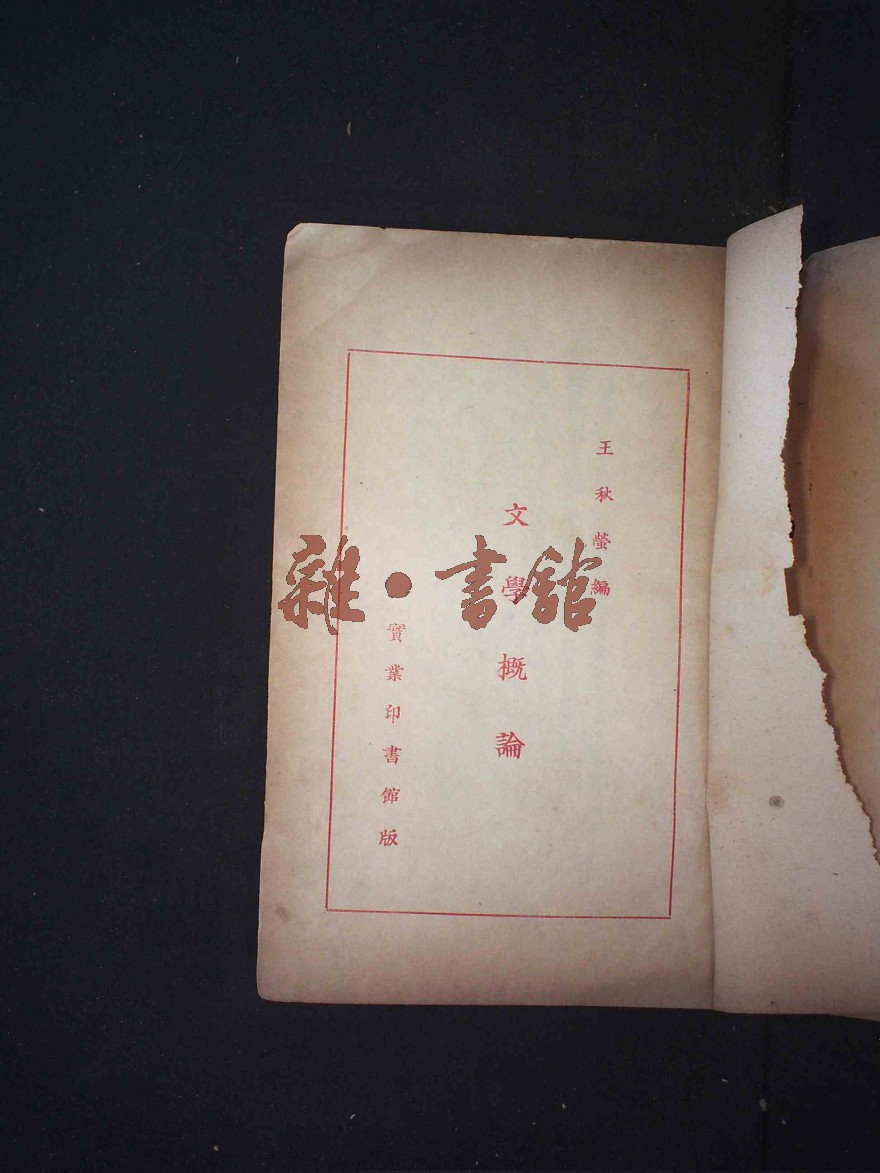 王秋螢編
文學概論
實業印書館版
雜·書館